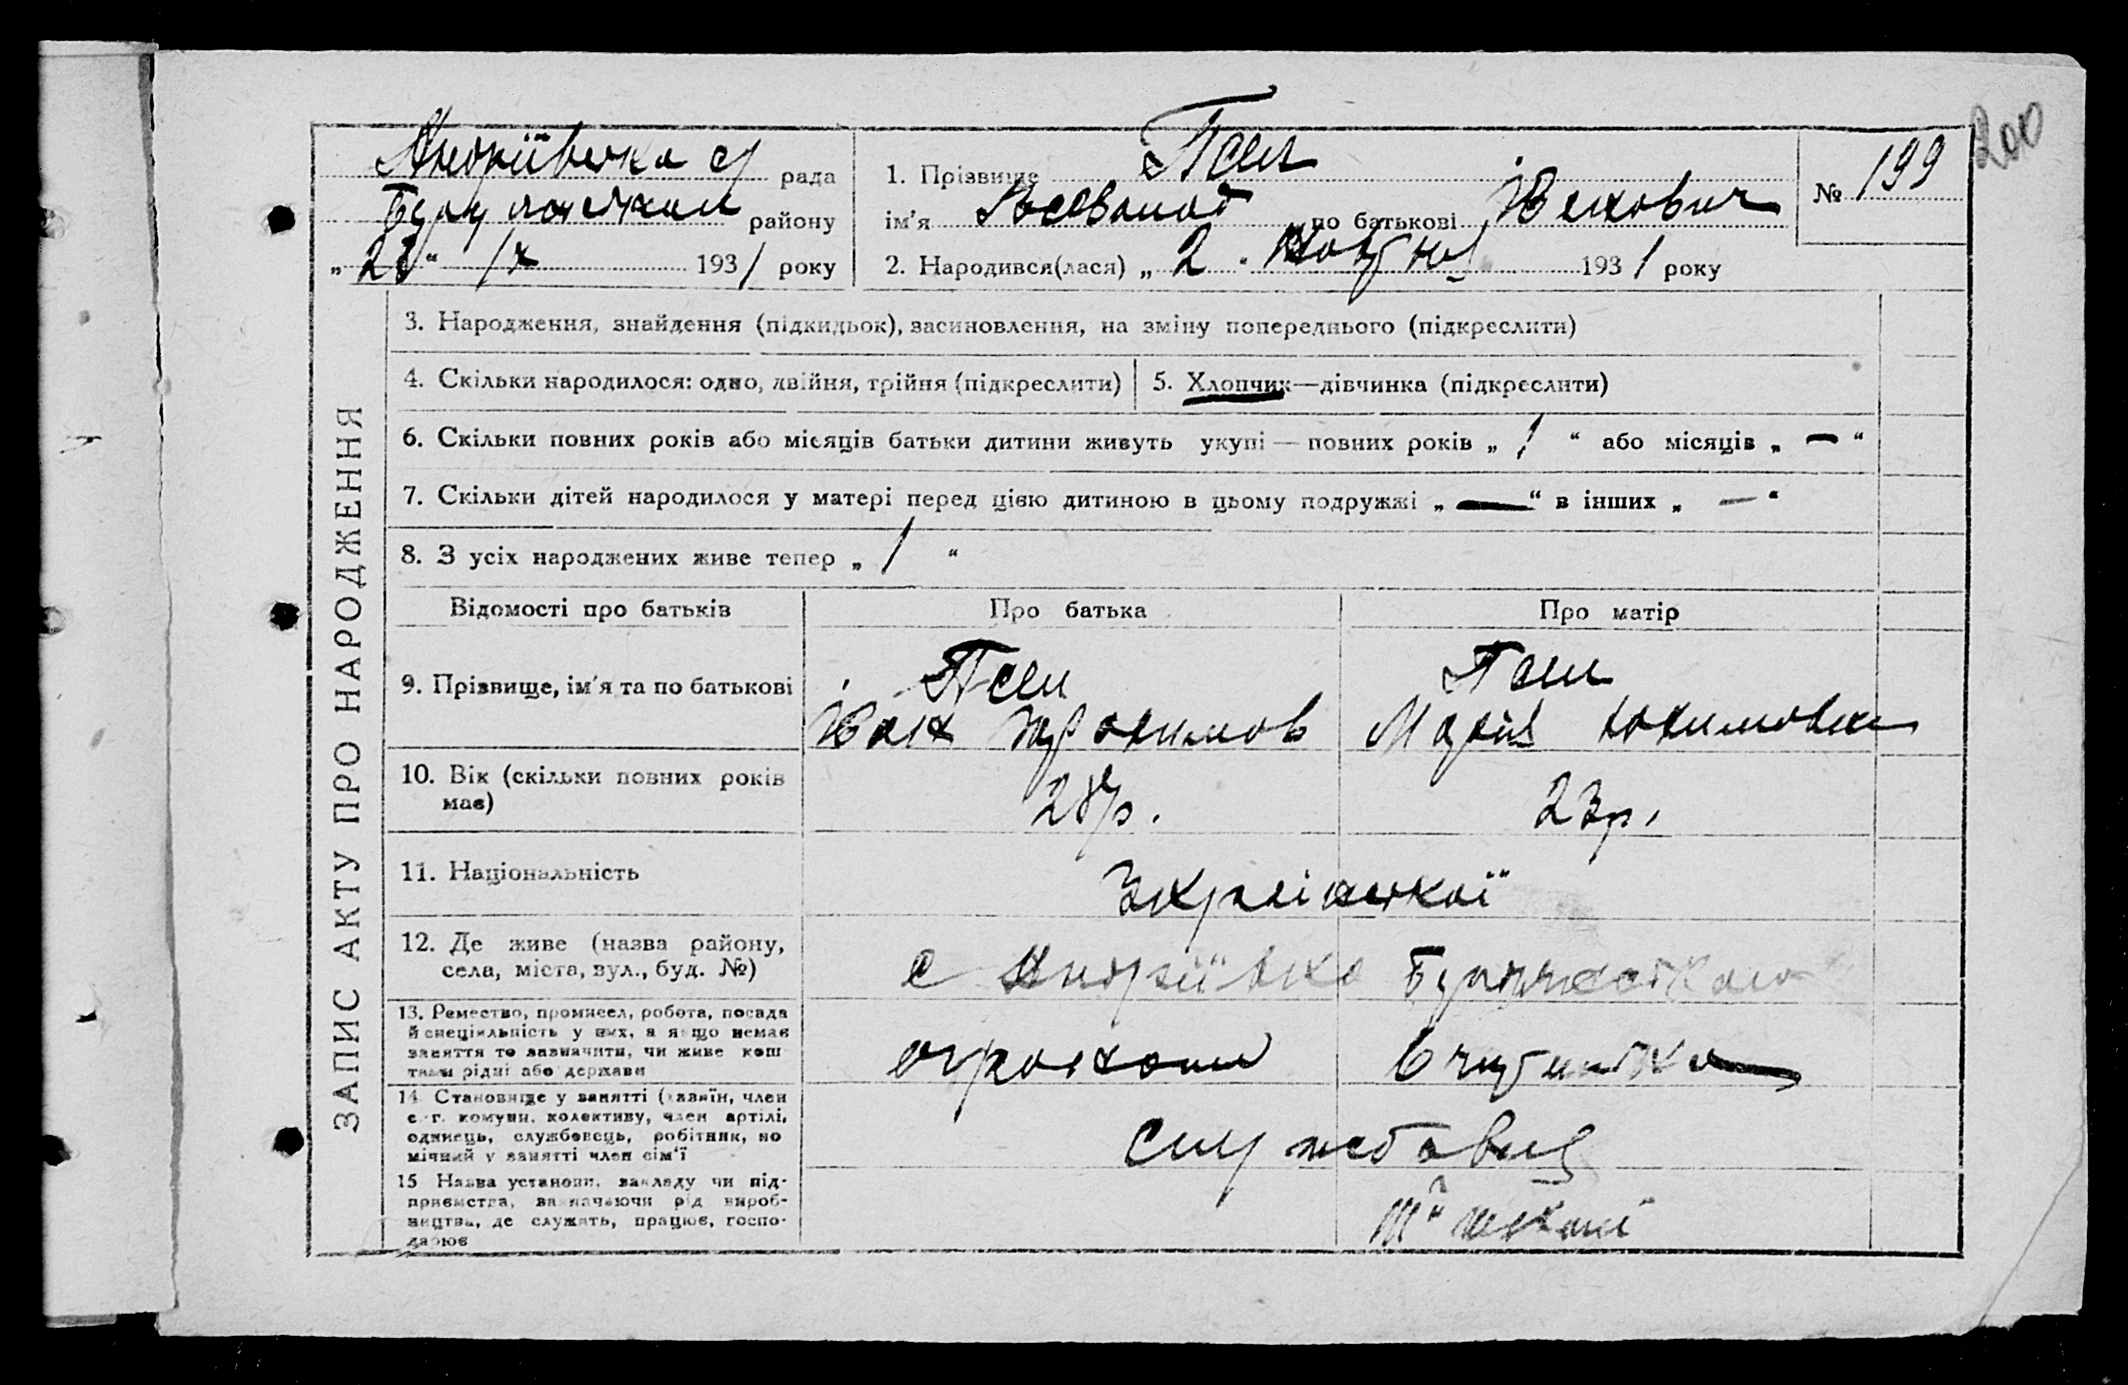 200
Андріївська с/ рада
району
„ 23 “ ІХ 1931 року
1. Прізвище Псел
ім'я Всеволод по батькові Іванович
2. Народився(лася) „ 2 “ 1931 року
№ 199
ЗАПИС АКТУ ПРО НАРОДЖЕННЯ
3. Народження, знайдення (підкидьок), засиновлення, на зміну попереднього (підкреслити)
4. Скільки народилося: одно, двійня, трійня (підкреслити)
5. Хлопчик—дівчинка (підкреслити)
6. Скільки повних років або місяців батьки дитини живуть укупі — повних років „ 1 “ або місяців „ — “
7. Скільки дітей народилося у матері перед цією дитиною в цьому подружжі „ — “ в інших „ — “
8. З усіх народжених живе тепер „ 1 “
Відомості про батьків
Про батька
Про матір
9. Прізвище, ім'я та по батькові
Псел
Іван
Псел
Марія Юхимовна
10. Вік (скільки повних років
має)
28 р.
23 р.
11. Національність
Української
12. Де живе (назва району,
села, міста, вул., буд. №)
с Андріївка
13. Ремество, промисел, робота, посада
й спеціяльність у них, а якщо немає
заняття то зазначити, чи живе кош
тами рідні або держави
агроном
вчителька
14. Становище у занятті (хазяїн, член
с.-г. комуни, колективу, член артілі,
одинець, службовець, робітник, по
мічний у занятті член сім'ї
службовец
15 Назва установи, закладу чи під-
приємства, зазначаючи рід вироб-
ництва, де служить, працює, госпо-
дарює